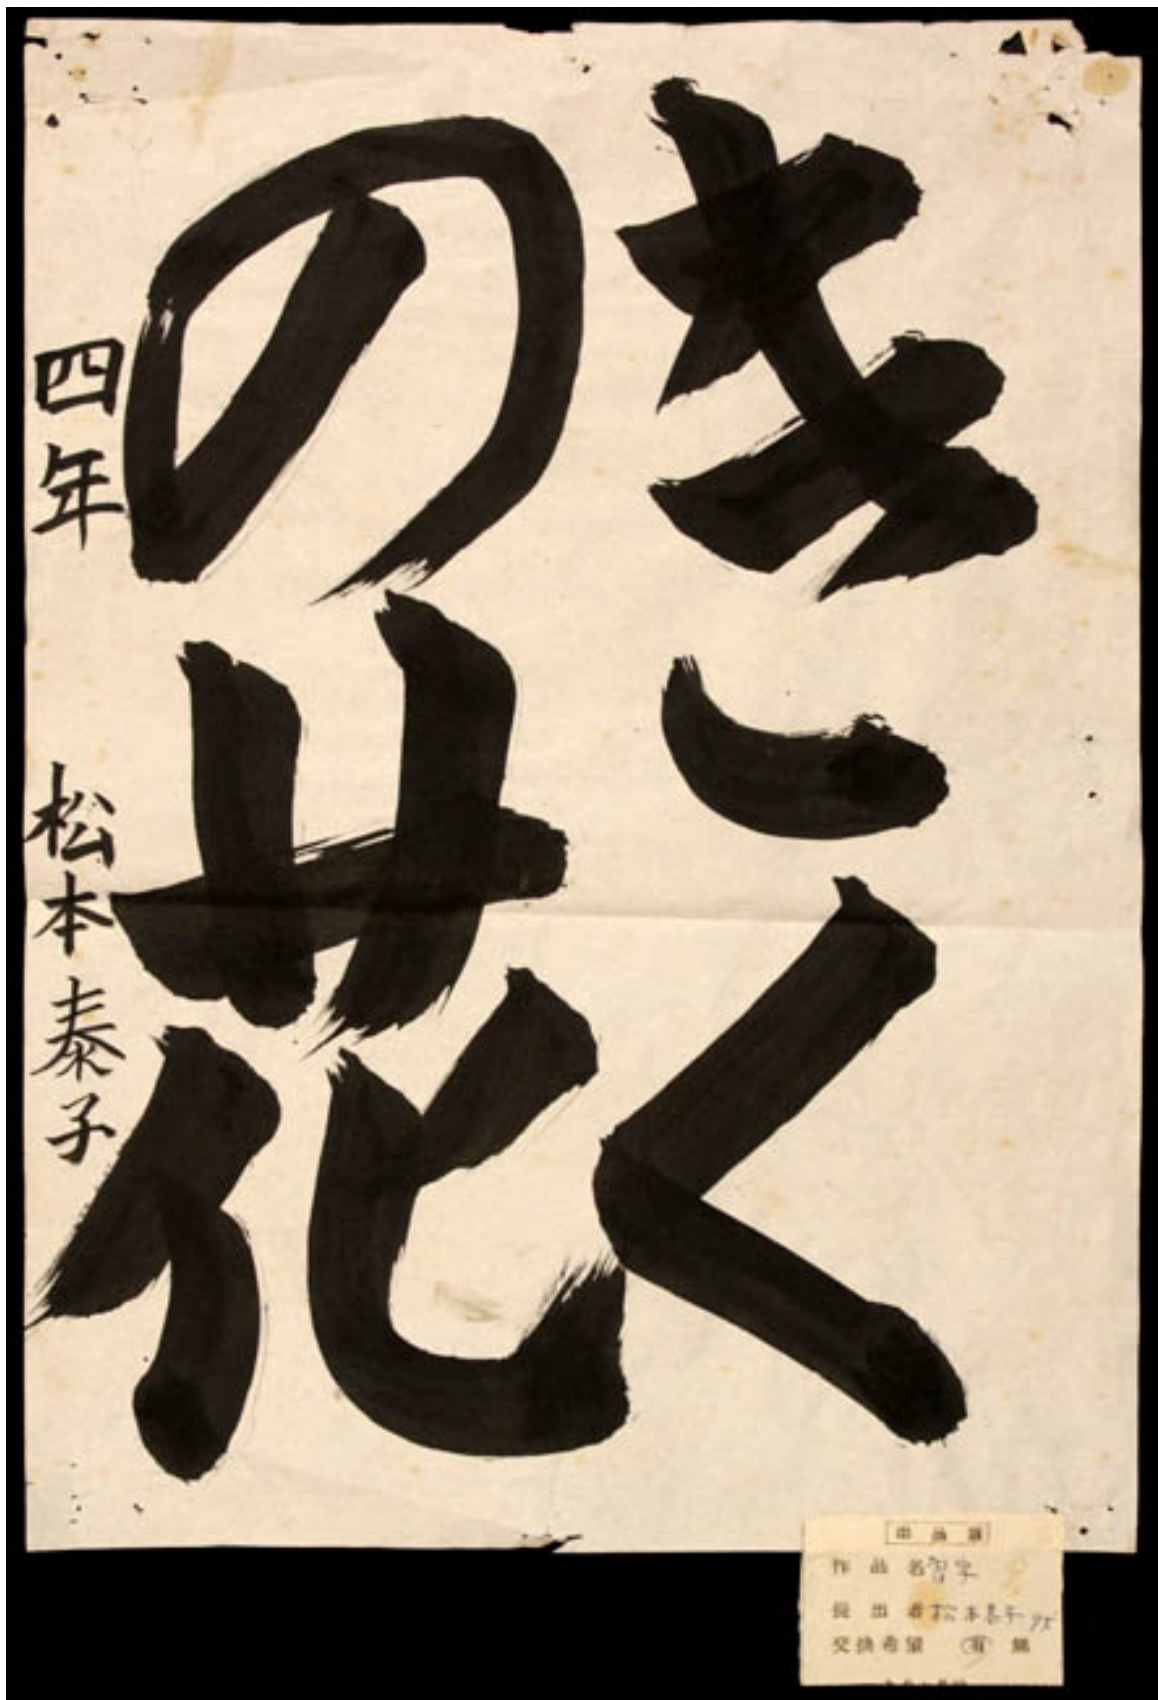 きく
の花
四年 松本泰子
出品票
作品名 習字
提出者 松本泰子
交換希望 有 無